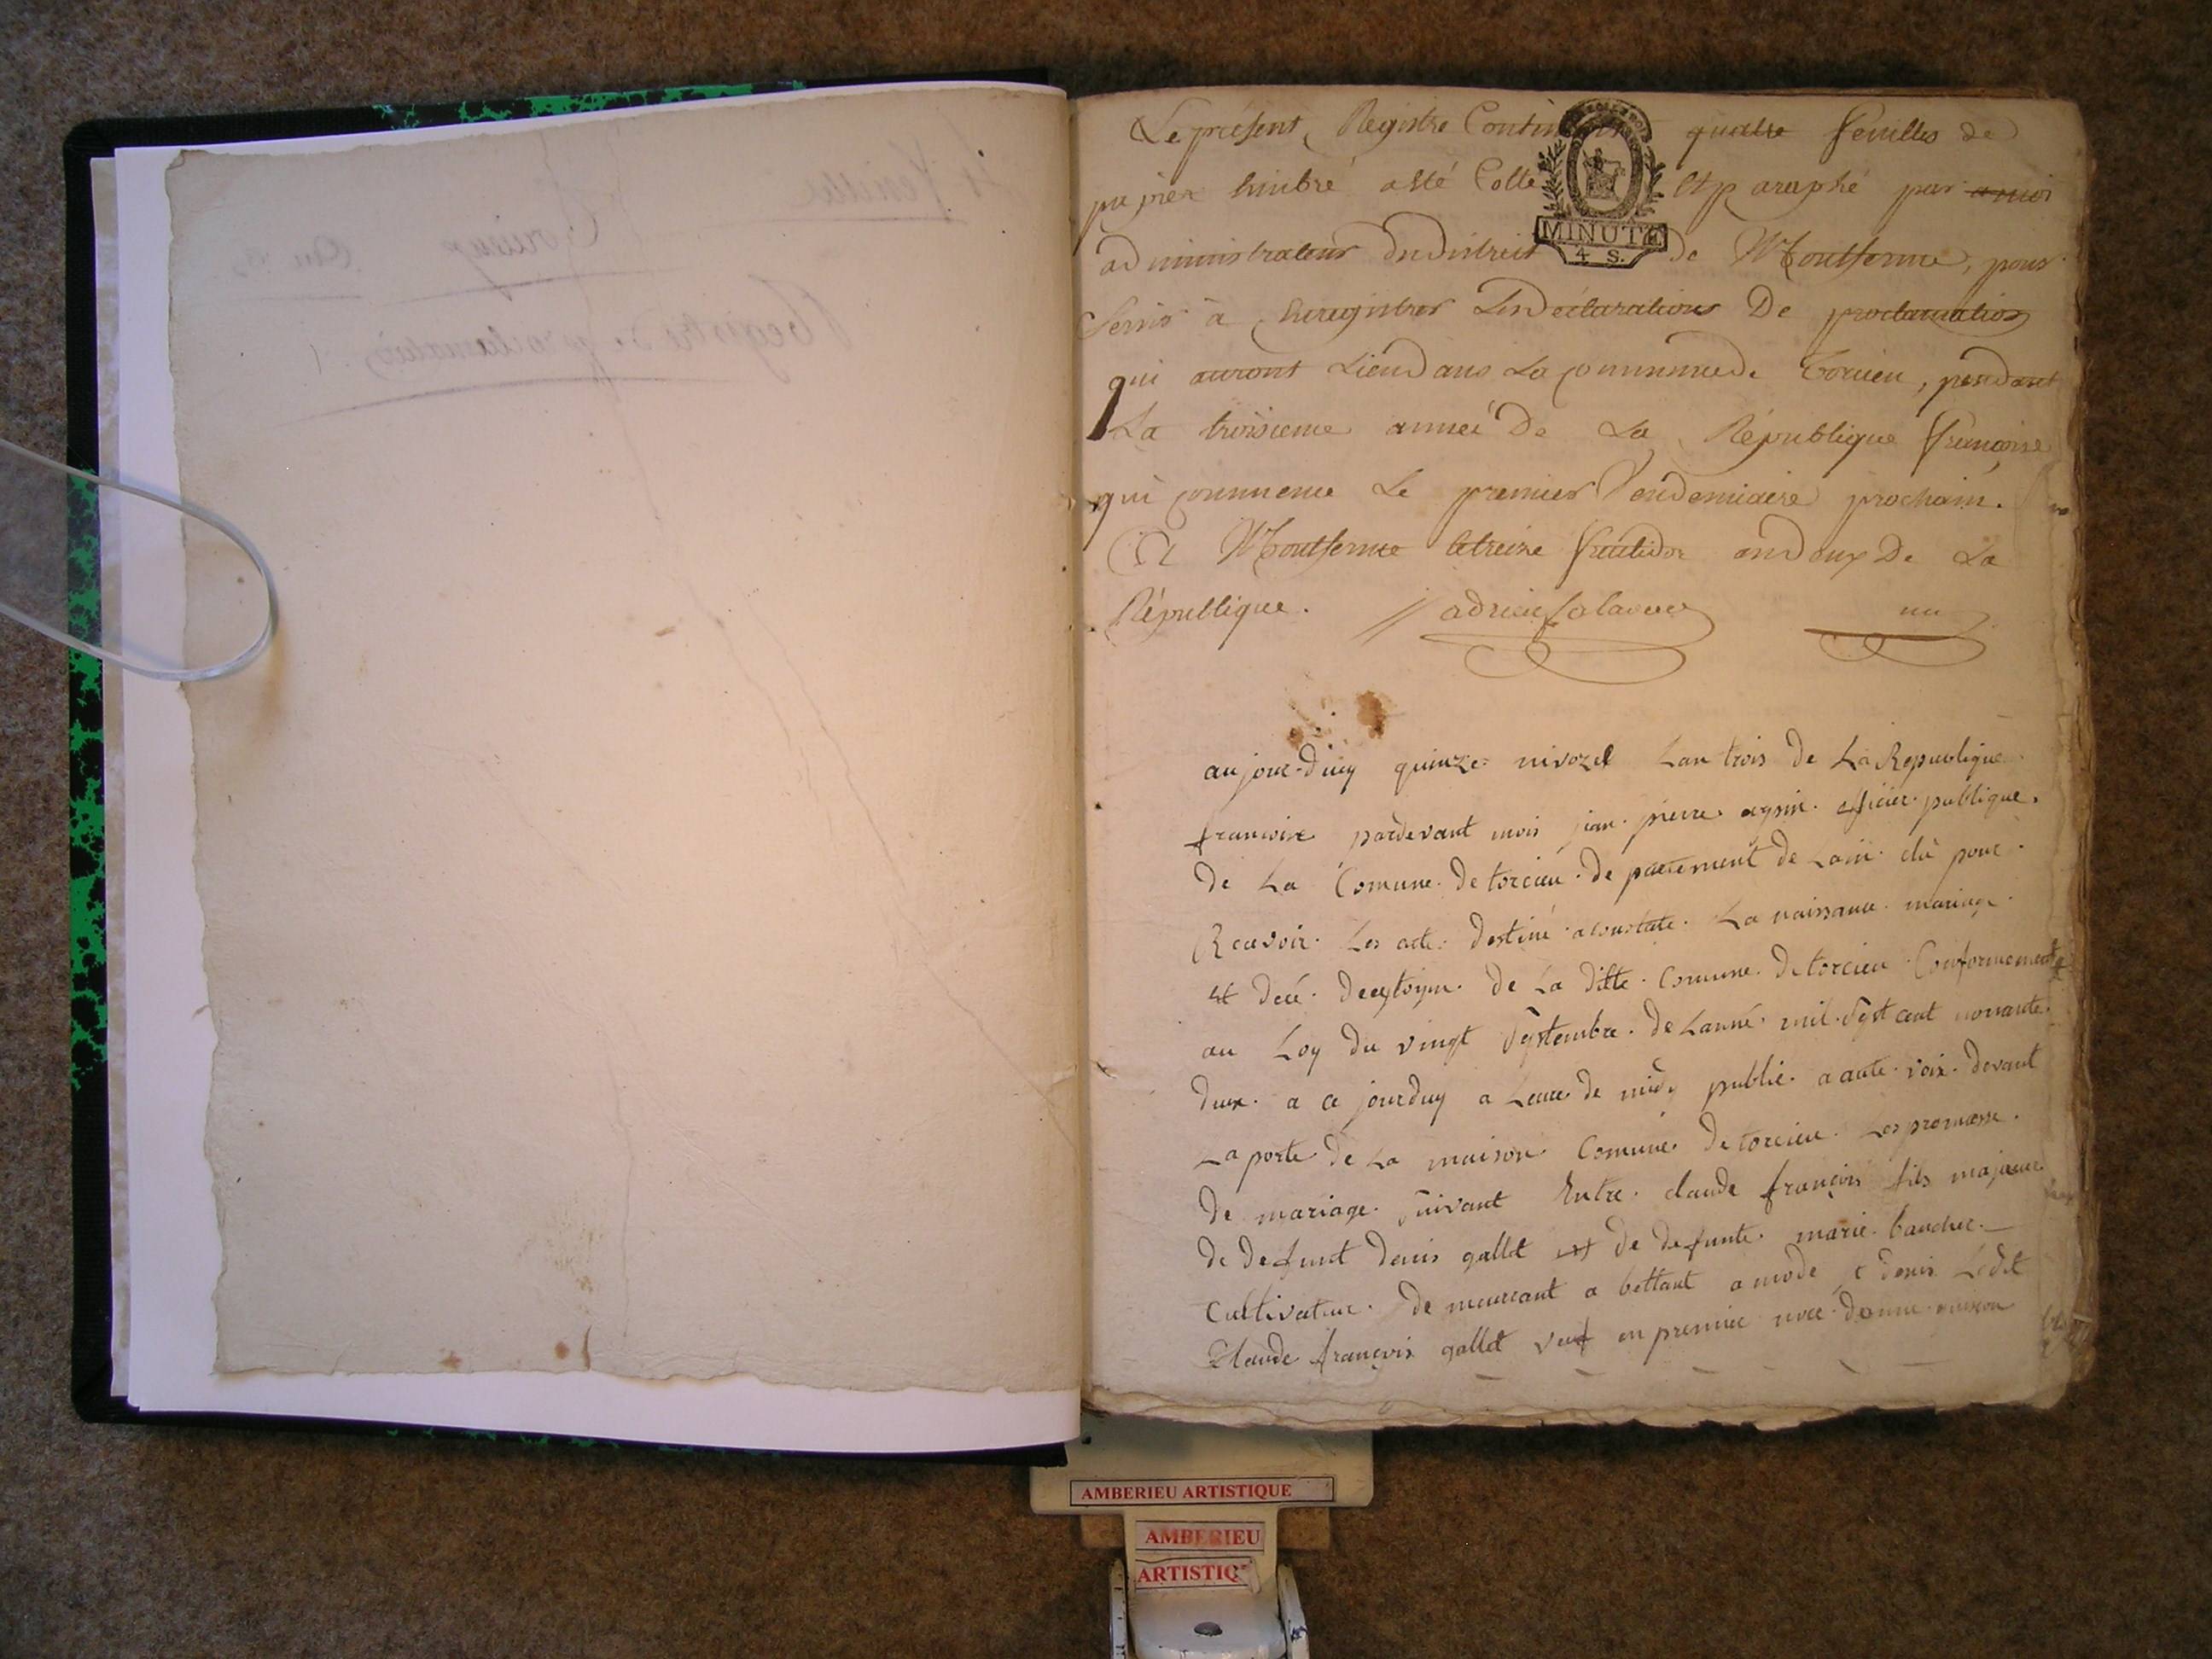 Le présent Registre Contenant quatre feuilles de
papier timbré a été Collé et paraphé par moi
administrateur du district de Montferme, pour
Servir à Enregistrer Les déclarations De proclamation
qui auront Lieu dans La Commune de Torcieu, pendant
La troisieme année De La République françoise
qui commence Le premier Vendemiaire prochain.
A Montferme le treize fructidor an deux De La
République.
MINUTE
4 S.
aujour-d'uy quinze nivoze Lan trois de La Republique
francoise pardevant mois jean pierre officier publique
de La Comune de torcieu departement de Lain élu pour
Recevoir Les acte destiné a constate La naissance mariage
et decé de La ditte Comune de torcieu Conformement
au Loy du vingt septembre de Lanné mil sept cent nonante
deux a ce jourduy a Leure de midy publié a aute voix devant
La porte de La maison Comune de torcieu Les promesse
de mariage suivant Entre claude françois fils majeur
de defunt denis gallet et de defunte marie
Cultivateur demeurant a bettant denis Ledit
Claude françois gallet veuf en premiere noce
AMBERIEU ARTISTIQUE
AMBERIEU
ARTISTIQ